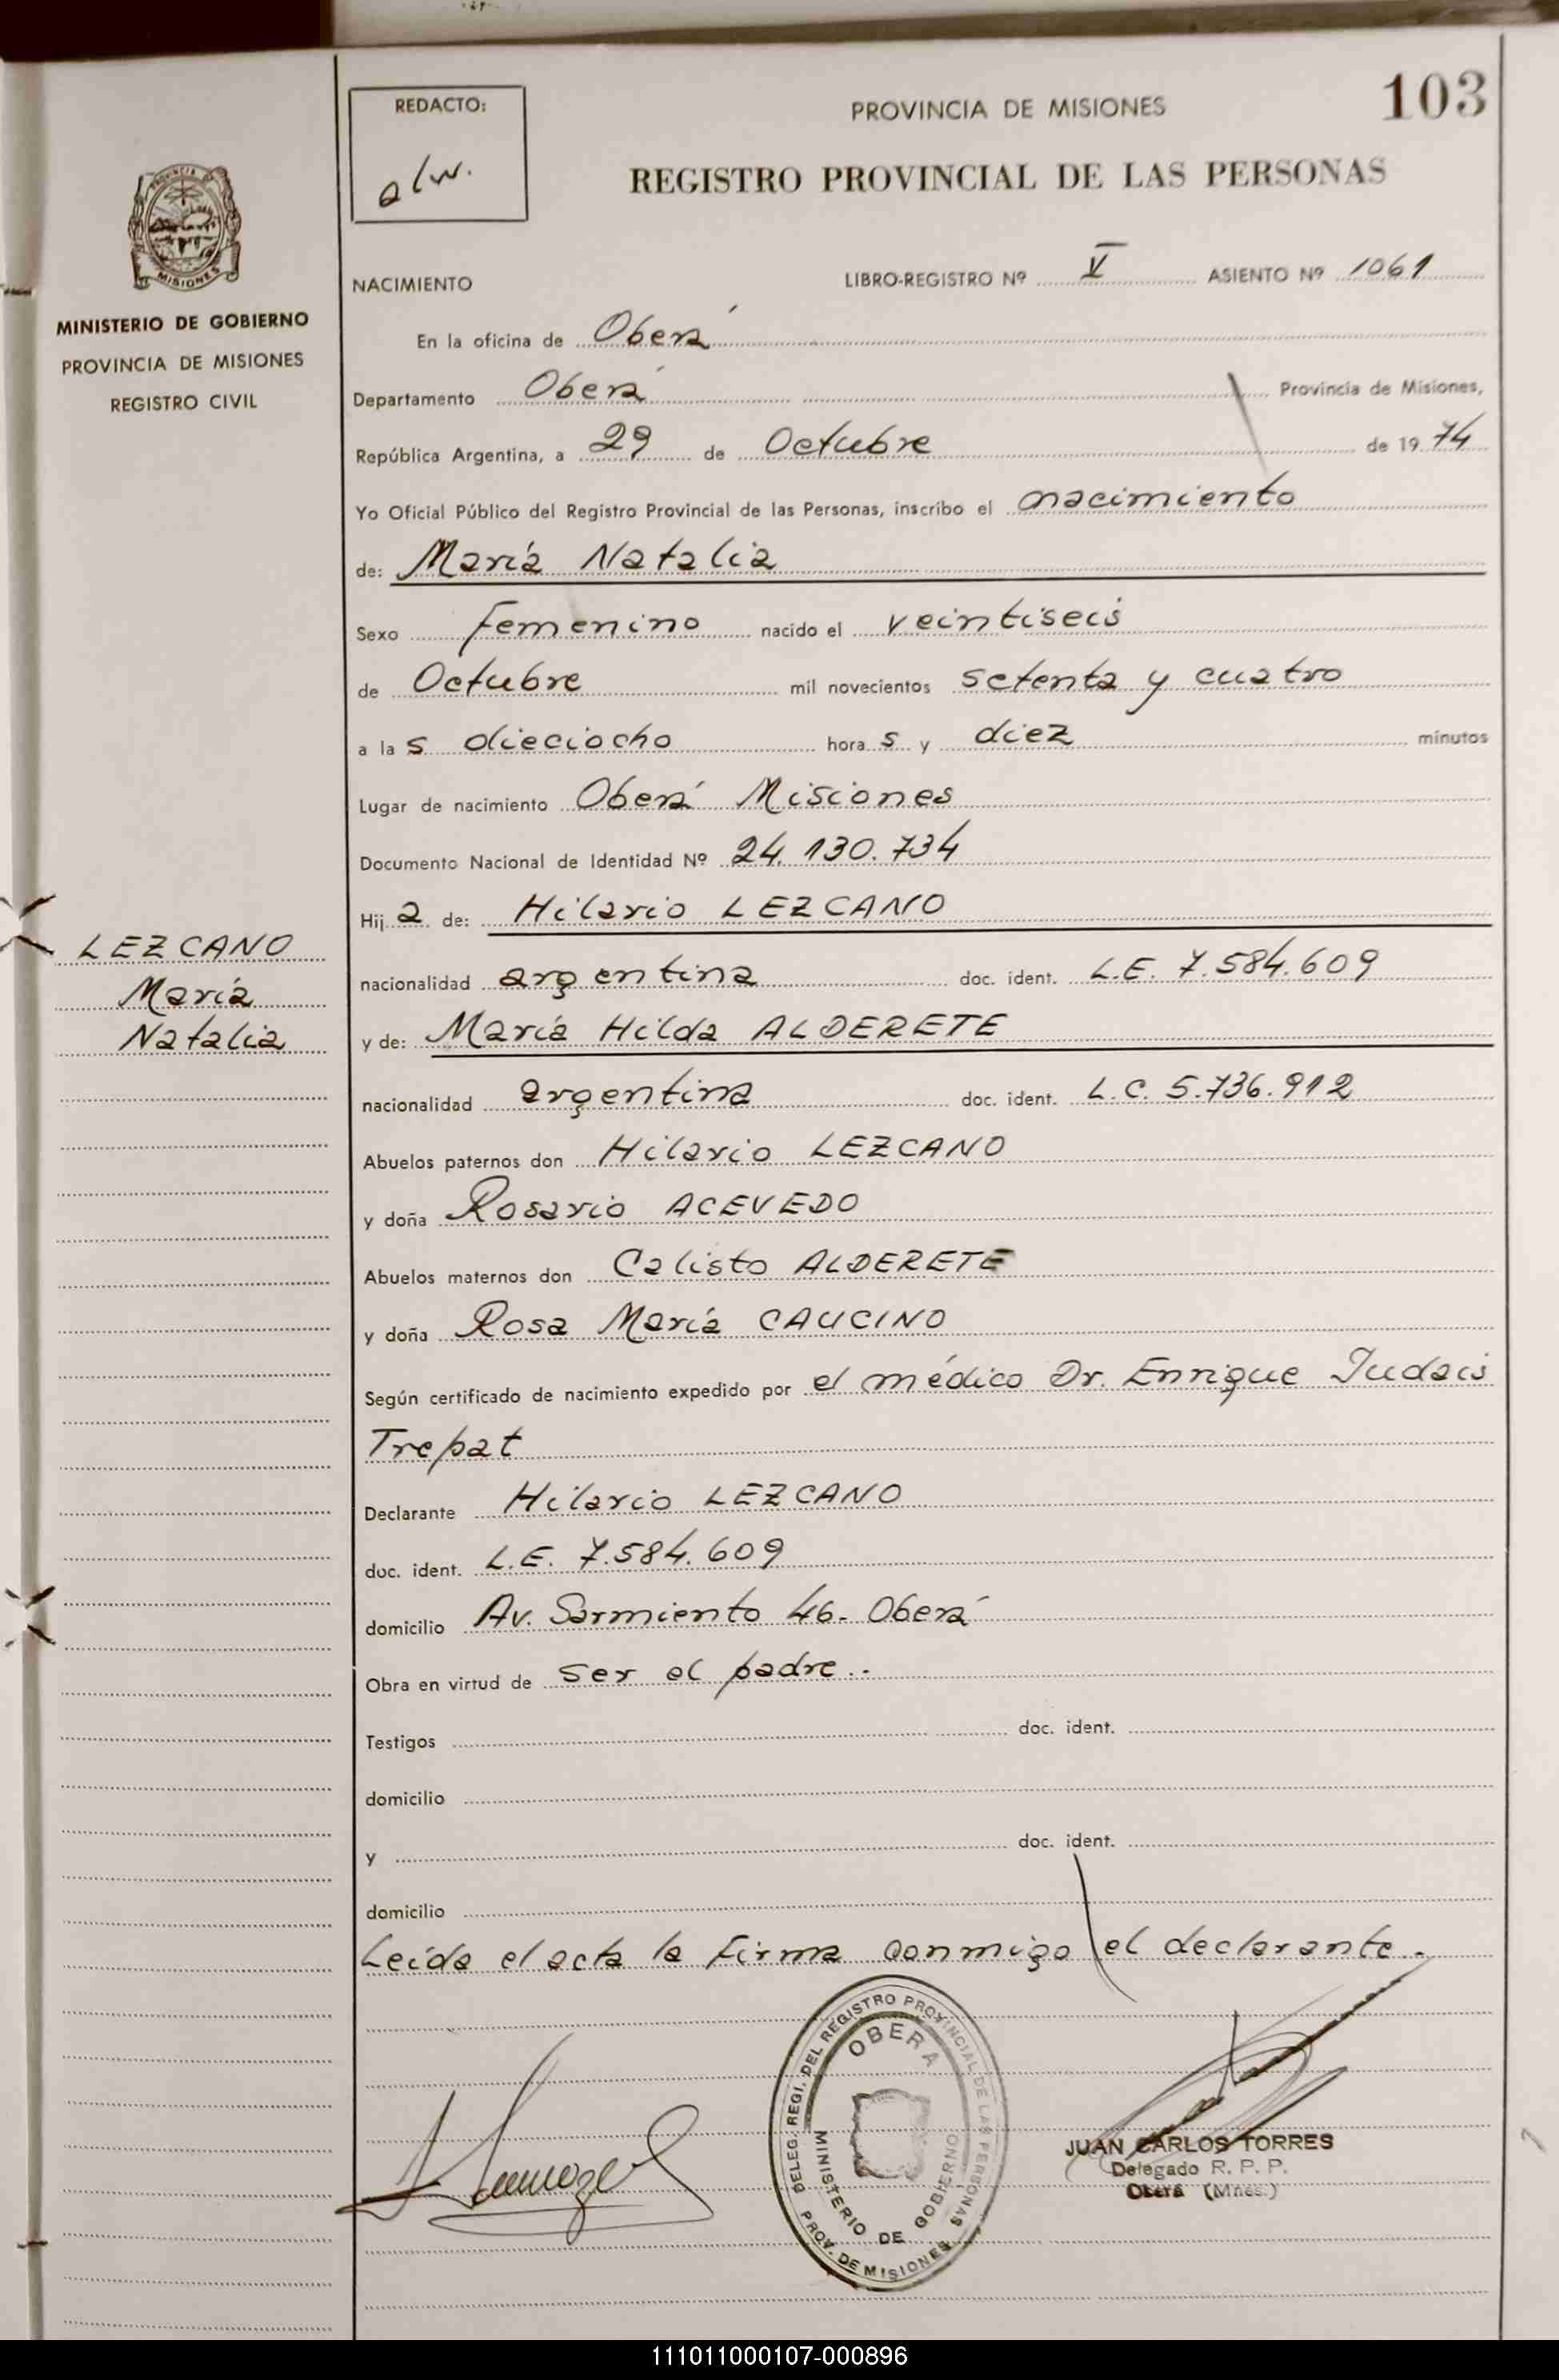 103
REDACTO:
alw.
PROVINCIA DE MISIONES
REGISTRO PROVINCIAL DE LAS PERSONAS
MISIONES
MINISTERIO DE GOBIERNO
PROVINCIA DE MISIONES
REGISTRO CIVIL
NACIMIENTO LIBRO-REGISTRO Nº V ASIENTO Nº 1061
En la oficina de Oberá
Departamento Oberá Provincia de Misiones,
República Argentina, a 29 de Octubre de 1974
Yo Oficial Público del Registro Provincial de las Personas, inscribo el nacimiento
de: María Natalia
Sexo Femenino nacido el veintiseis
de Octubre mil novecientos setenta y cuatro
a las dieciocho horas y diez minutos
Lugar de nacimiento Oberá Misiones
Documento Nacional de Identidad Nº 24.130.734
Hija de: Hilario LEZCANO
LEZCANO
María
Natalia
nacionalidad argentina doc. ident. L.E. 7.584.609
y de: María Hilda ALDERETE
nacionalidad argentina doc. ident. L.C. 5.736.912
Abuelos paternos don Hilario LEZCANO
y doña Rosario ACEVEDO
Abuelos maternos don Calisto ALDERETE
y doña Rosa María CAUCINO
Según certificado de nacimiento expedido por el médico Dr. Enrique Judais
Trepat
Declarante Hilario LEZCANO
doc. ident. L.E. 7.584.609
domicilio Av. Sarmiento 46.- Oberá
Obra en virtud de ser el padre.-
Testigos doc. ident.
domicilio
y doc. ident.
domicilio
Leída el acta la firma conmigo el declarante.-
DELEG. REGI. DEL REGISTRO PROVINCIAL DE LAS PERSONAS
OBERA
MINISTERIO DE GOBIERNO
PROV. DE MISIONES
JUAN CARLOS TORRES
Delegado R. P. P.
Oberá (Mnes.)
111011000107-000896